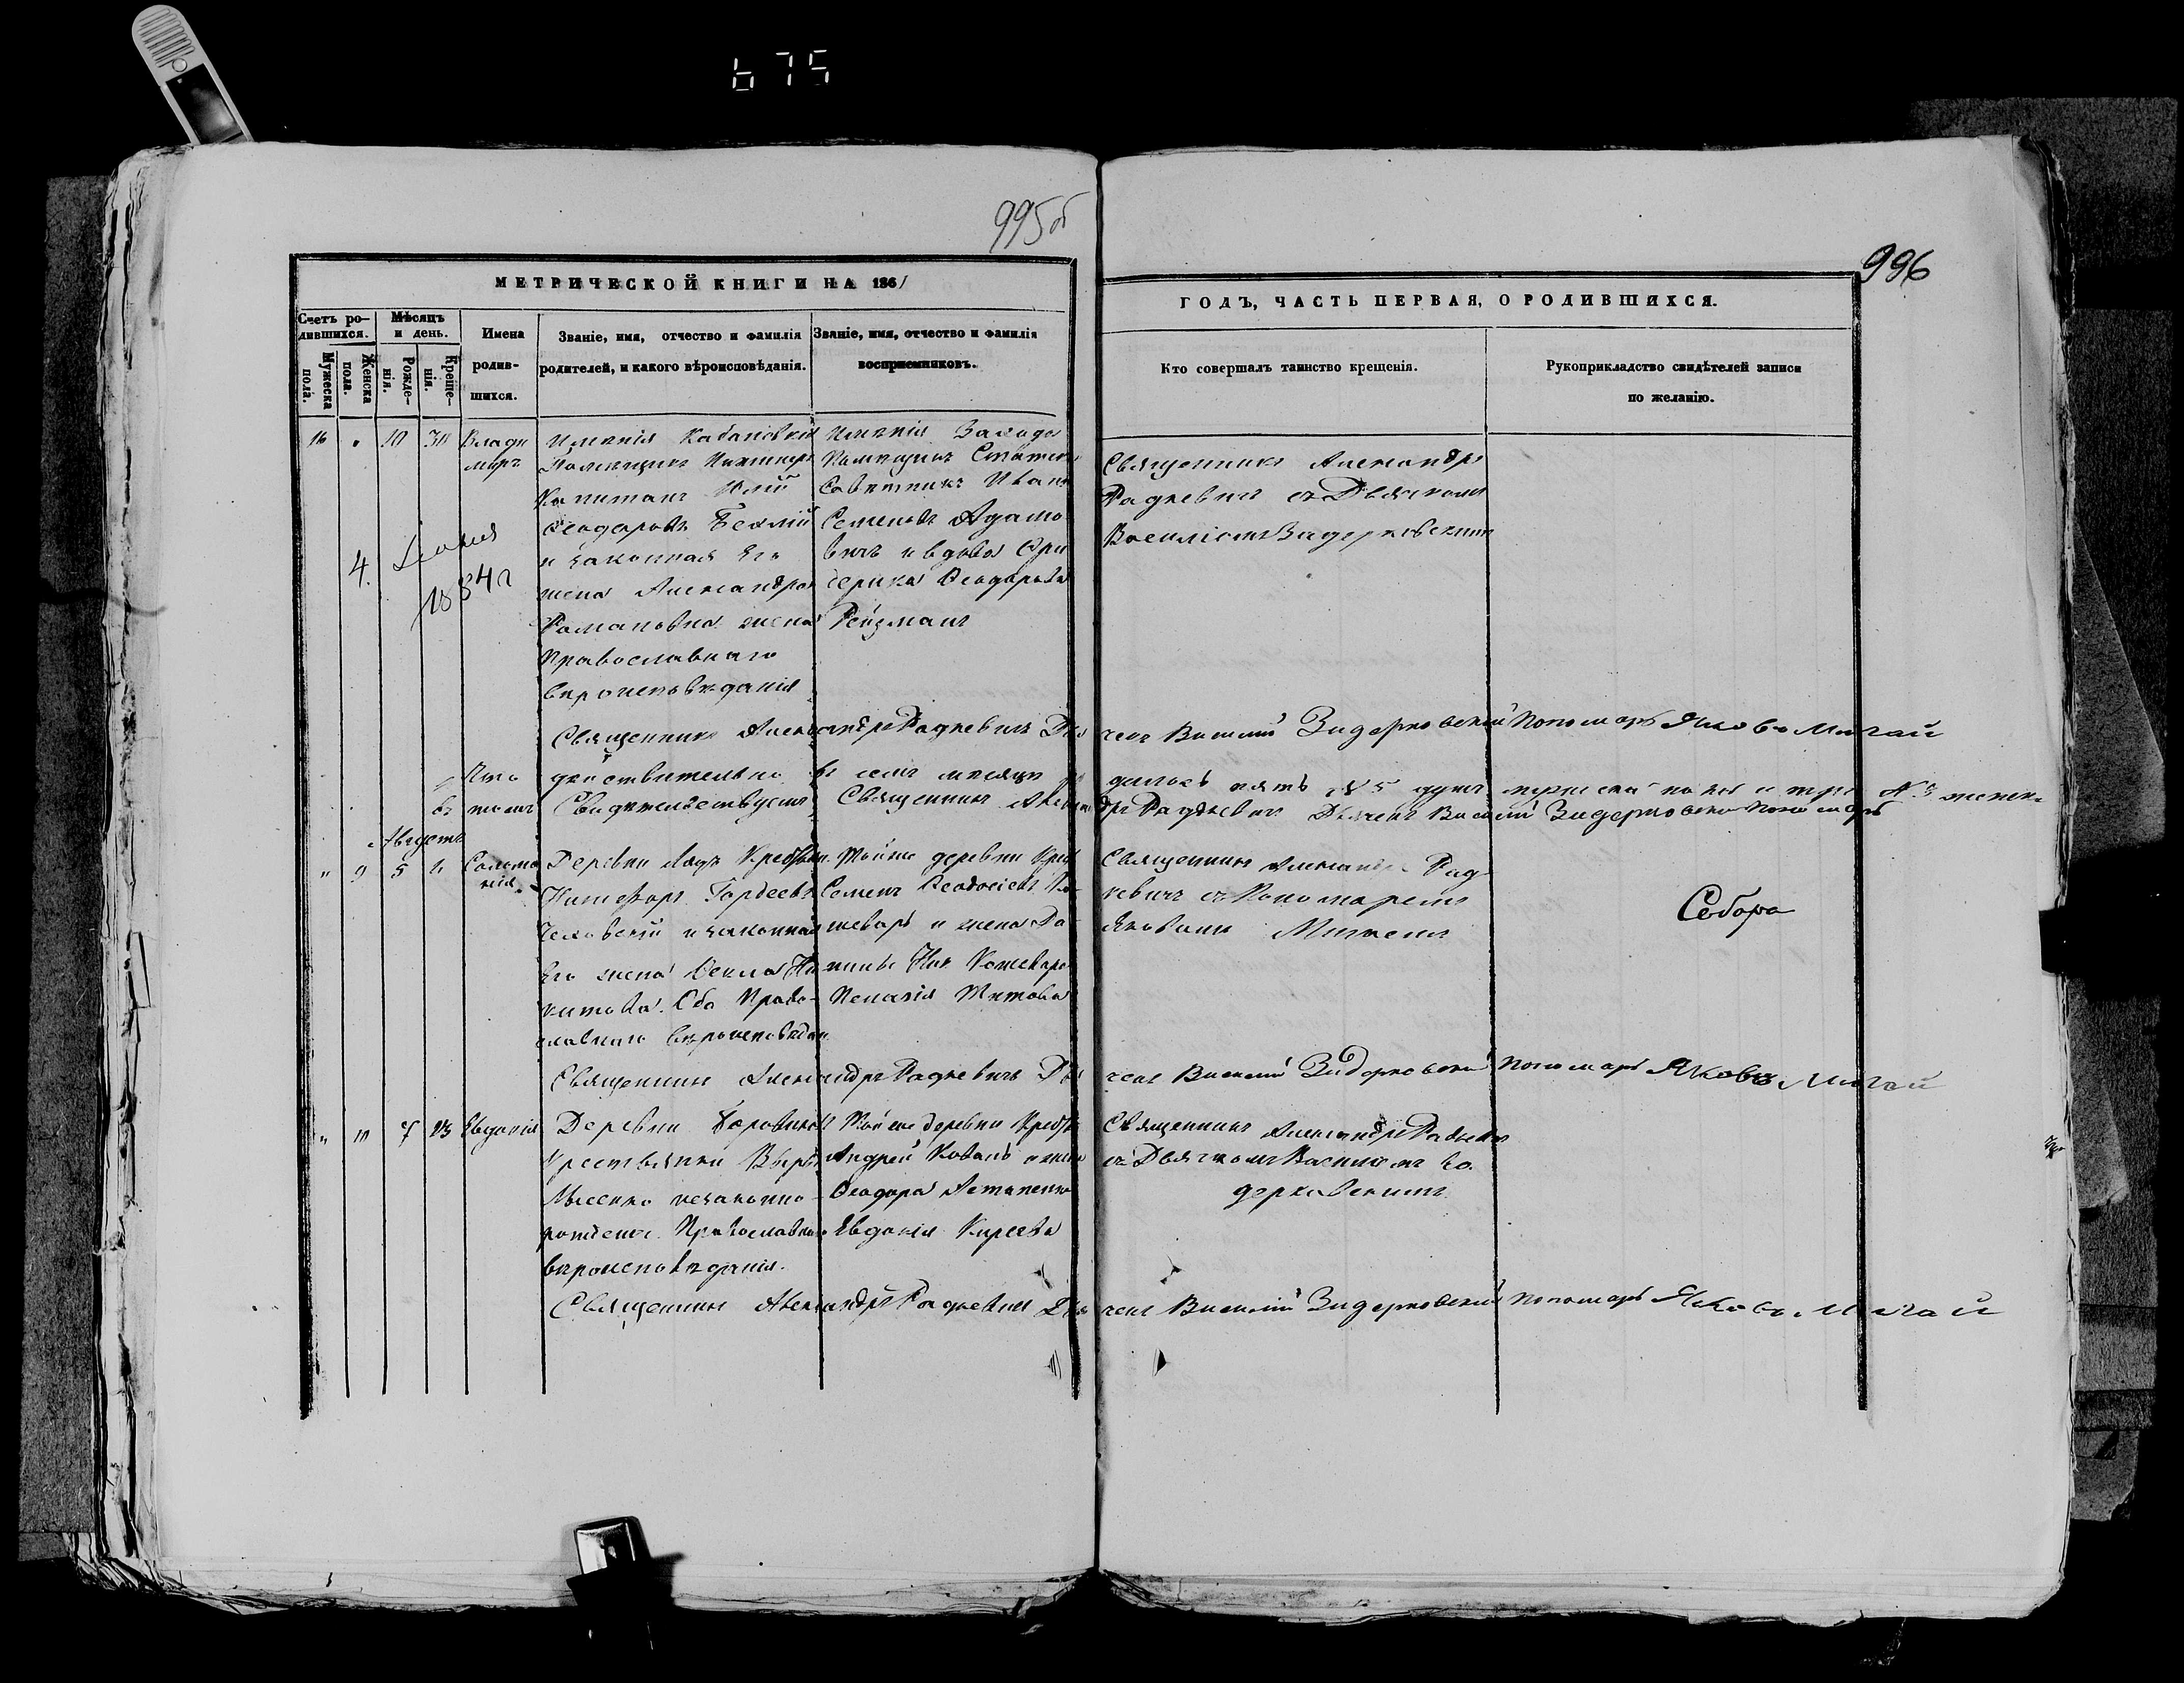 675
995об
996
МЕТРИЧЕСКОЙ КНИГИ НА 1861
ГОДЪ, ЧАСТЬ ПЕРВАЯ, О РОДИВШИХСЯ.
Счетъ ро-
дившихся.
Мужеска
пола.
Женска
пола.
Мѣсяцъ
и день.
Рожде-
нія.
Креще-
нія.
Имена
родив-
шихся.
Званіе, имя, отчество и фамилія
родителей, и какого вѣроисповѣданія.
Званіе, имя, отчество и фамилія
воспріемниковъ.
Кто совершалъ таинство крещенія.
Рукоприкладство свидѣтелей записи
по желанію.
16 " 10 30 Влади
миръ
4.
1884 г
Имѣнія
Помѣщикъ
Капитанъ Юлій
Феодоровъ
и законная его
жена Александра
Романовна жена
Православнаго
вѣроисповѣданія
Имѣнія
Помѣщикъ Статскій
Совѣтникъ Иванъ
Семеновъ Адамо
вичъ и вдова Фри
дерика Феодорова
Рейзманъ
Священникъ Александръ
Радкевичъ съ Дьячкомъ
Василіемъ Зидерковскимъ
Священникъ Александръ Радкевичъ Дья чекъ Василій Зидерковскій Пономарь Яковъ Мигай
Что дѣйствительно въ семъ мѣсяцѣ ро дилось пять №5 душъ мужеска пола и три №3 женск.
въ томъ Свидѣтельствуемъ Священникъ Александръ Радкевичъ Дьячекъ Василій Зидерковскій Пономарь
Августъ
" 9 5 6 Соломо
нія.
Деревни
Никифоръ Гордеевъ
и законная
его жена Фекла Ни
китова. Оба Право-
славнаго вѣроисповѣдан.
Тойже деревни Крест
Семенъ Феодосіевъ Ко-
шеваръ и жена
Кошевара
Пелагія Титова
Священникъ Александръ Рад
кевичъ съ Пономаремъ
Яковомъ Мигаемъ
Себора
Священникъ Александръ Радкевичъ Дья чекъ Василій Зидерковскій Пономарь Яковъ Мигай
" 10 7 13 Евдокія
Деревни Боровиковъ
Крестьянки Вѣры
Мысенко незаконно
рожденна. Православнаго
вѣроисповѣданія.
Тойже деревни Крестья
Андрей Коваль и жена
Феодора
Евдокія Киреева
Священникъ Александръ Радкевичъ
съ Дьячкомъ Василіемъ Зи
дерковскимъ
Священникъ Александръ Радкевичъ Дья чекъ Василій Зидерковскій Пономарь Яковъ Мигай